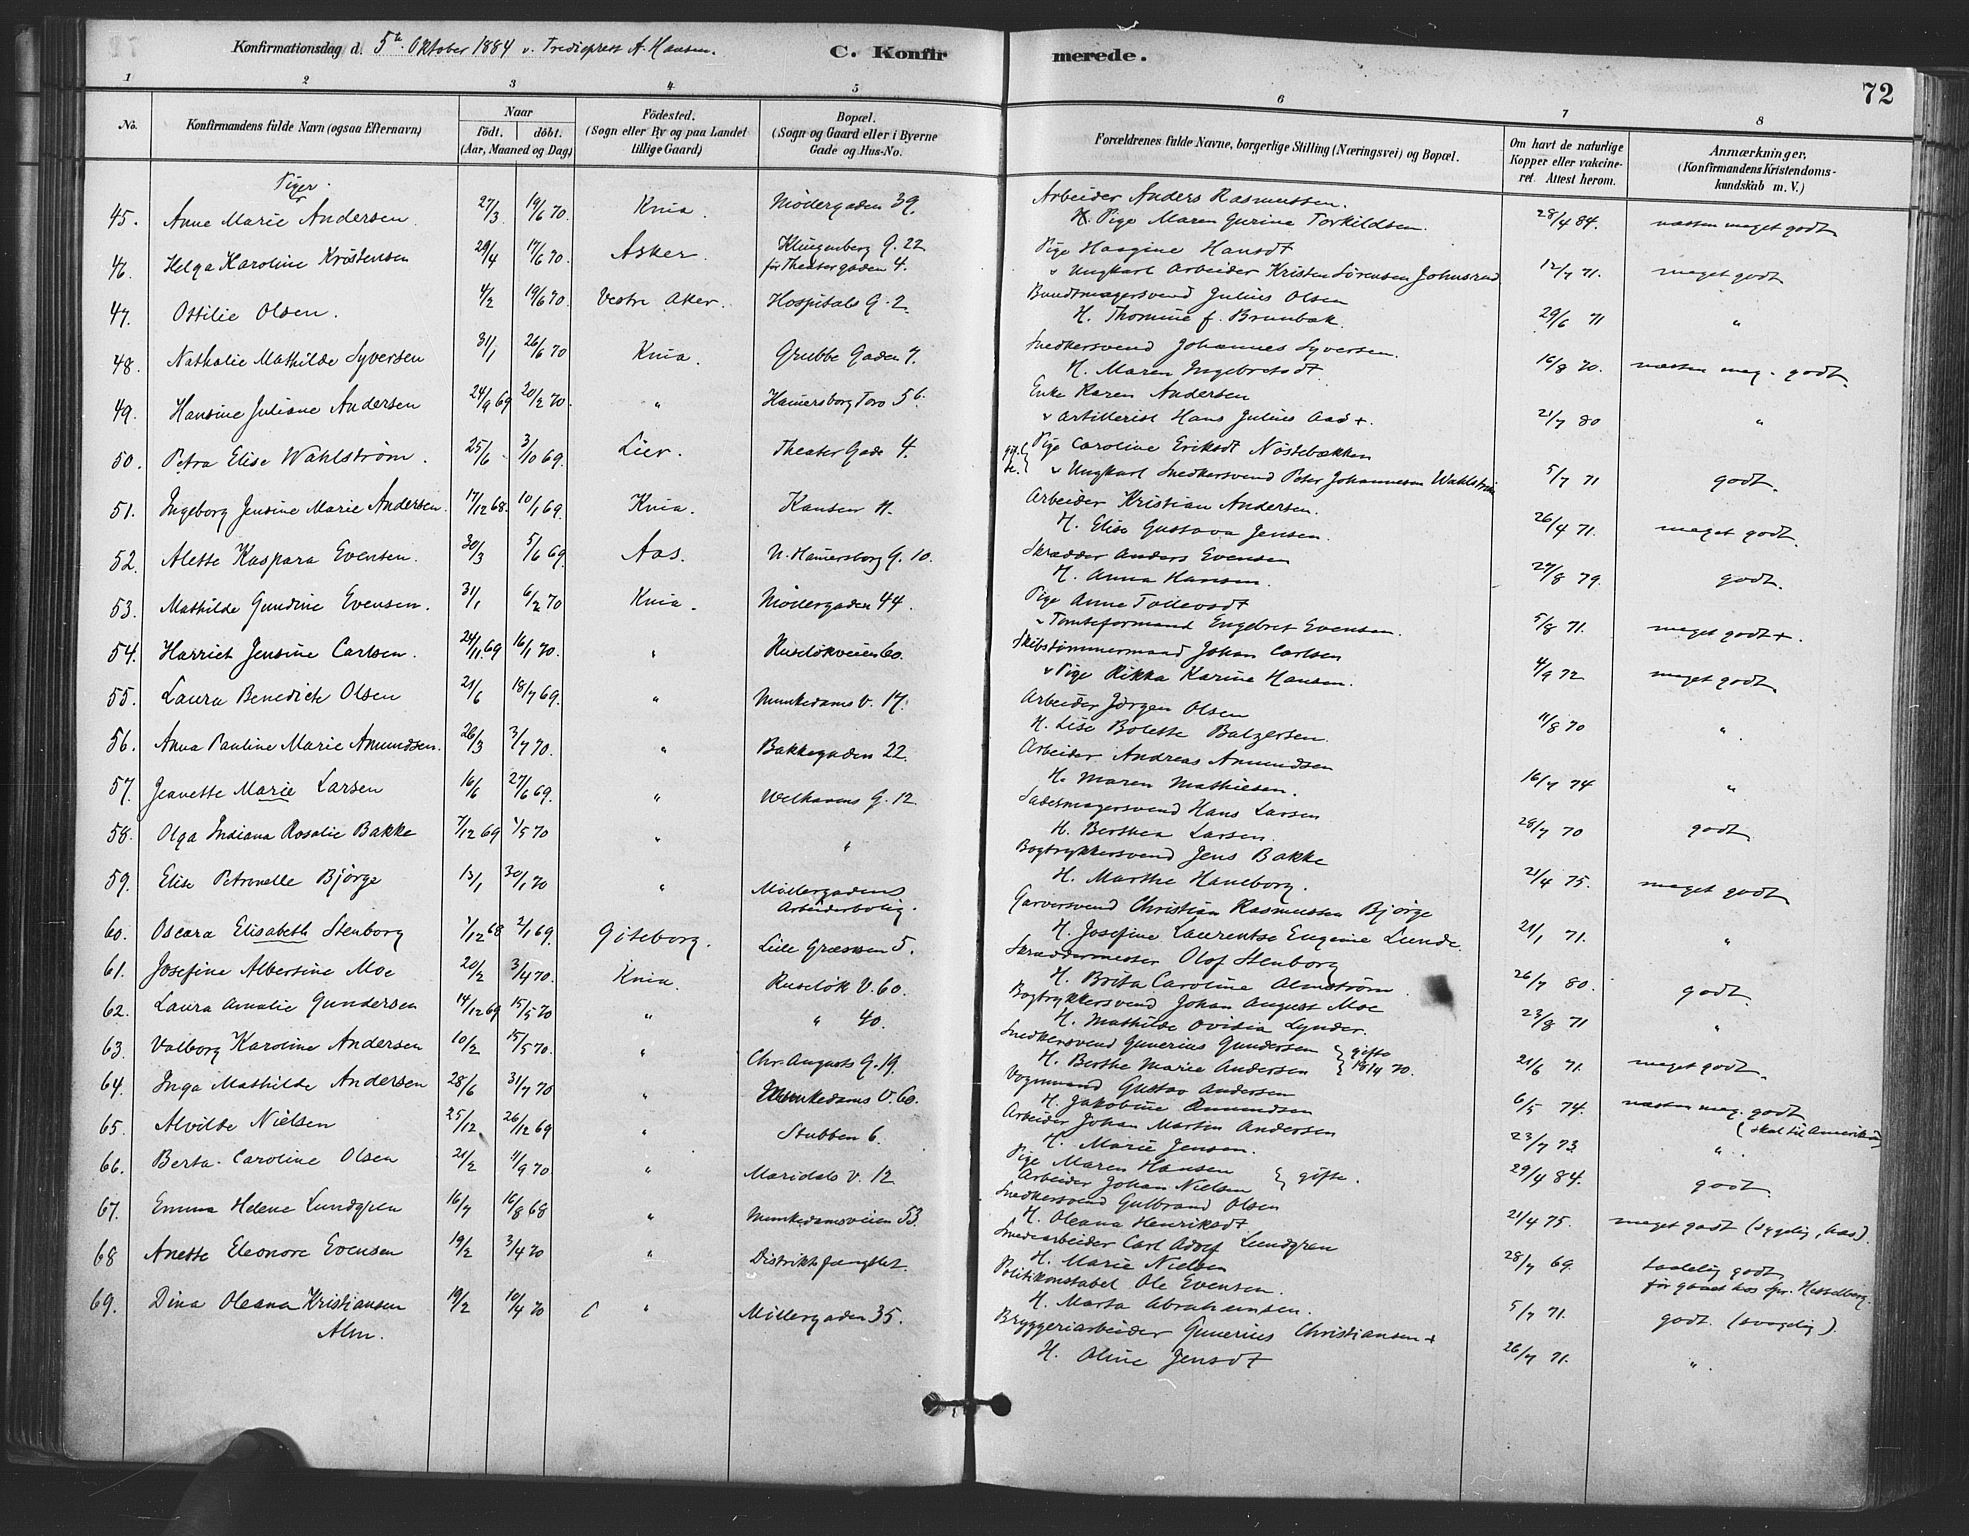 Konfirmationsdag d. 5te Oktober 1884 v. Tredieprest A. Hansen.
C. Konfirmerede.
72
1 2 3 4 5 6 7 8
No.
Konfirmandens fulde Navn (ogsaa Efternavn)
Naar
födt. döbt.
(Aar, Maaned og Dag)
Födested.
(Sogn eller By og paa Landet
tillige Gaard)
Bopæl.
(Sogn og Gaard eller i Byerne
Gade og Hus-No.
Forældrenes fulde Navne, borgerlige Stilling (Næringsvei) og Bopæl.
Om havt de naturlige
Kopper eller vakcine-
ret. Attest herom.
Anmærkninger,
(Konfirmandens Kristendoms-
kundskab m. V.)
Piger.
45. Anne Marie Andersen 27/3 19/6 70 Knia. Mödergaden 39. Arbeider Anders Rasmussen.
H. Pige Maren Gurine Torkildsen. 28/4 84. næsten meget godt
46. Helga Karoline Kristensen 29/4 17/6 70. Asker. Klingenberg G. 22 Pige Haagine Hansdt
før Theatergaden 4. v Ungkarl Arbeider Kristen Sørensen Johnsrud 12/7 71. meget godt
47. Ottilie Olsen. 4/2 19/6 70 Vestre Aker. Hospitals G. 2 Bundtmagersvend Julius Olsen
H. Thomine f. Brunbæk. 29/6 71 "
48. Nathalie Mathilde Syversen 31/1 26/6 70 Knia. Grubbe Gaden 7. Snedkersvend Johannes Syversen.
H. Maren Ingebretsdt 16/8 70. næsten meg. godt.
49. Hansine Juliane Andersen 24/9 69 20/2 70. " Hamersborg Torv 56. Enke Karen Andersen
v Artillerist Hans Julius Aas +. 21/7 80 "
50. Petra Elise Wahlstrøm. 25/6 3/10 69. Lier. Theater Gade 4. Pige Caroline Eriksdt Nöstebækken
v Ungkarl Snedkersvend Peter Johannesen Wahlström 5/7 71 godt.
51. Ingeborg Jensine Marie Andersen. 17/12 68. 10/1 69. Knia. Kansen 11. Arbeider Kristian Andersen.
H. Elise Gustava Jensen. 26/4 71. meget godt.
52. Alette Kaspara Evensen. 30/3 5/6 69. Aas. N. Hamersborg G. 10. Skrædder Anders Evensen
H. Anna Hansen. 27/8 79. godt.
53. Mathilde Gundine Evensen. 31/1 6/2 70 Knia. Mödergaden 44. Pige Anne Tollevsdt
v Tomteformand Engebret Evensen. 5/8 71. meget godt +.
54. Harriet Jensine Carlsen. 24/11 69 16/1 70. " Ruselökveien 60. Skibstømmermand Johan Carlsen
v Pige Rikka Karine Hansen. 4/9 72 meget godt
55. Laura Benedicte Olsen 21/6 18/7 69. " Munkedams V. 17. Arbeider Jørgen Olsen
H. Lise Bolette Balzersen. 11/8 70 "
56. Anna Pauline Marie Amundsen. 26/3 3/7 70. " Bakkegaden 22. Arbeider Andreas Amundsen
H. Maren Mathiesen. 16/7 74 "
57. Jeanette Marie Larsen 16/6 27/6 69. " Welhavens G. 12 Sadelmagersvend Hans Larsen
H. Berthea Larsen. 28/7 70 godt
58. Olga Indiana Rosalie Bakke 7/12 69 1/5 70 " " Bogtrykkersvend Jens Bakke
H. Marthe Haneborg. 21/4 75. meget godt
59. Elise Petronelle Bjørge 13/1 30/1 70 " Møllergadens
Arbeiderbolig. Garversvend Christian Rasmussen Bjørge
H. Josefine Laurentse Eugenie Lunde. 21/1 71. "
60. Oscara Elisabeth Stenborg 7/12 68 2/1 69. Göteborg. Lille Grænsen 5. Skræddermester Olof Stenborg
H. Brita Caroline Almstrøm. 26/7 80. godt
61. Josefine Albertine Moe 20/2 3/4 70. Knia. Ruselök V. 60. Bogtrykkersvend Johan August Moe
H. Mathilde Ovidia Lynder. 23/8 71 "
62. Laura Amalie Gundersen 14/12 69 15/5 70 " " 40. Snedkersvend Gunerius Gundersen } gifte
H. Berthe Marie Andersen } 18/4 70. 21/6 71. meget godt
63. Valborg Karoline Andersen 10/2 15/5 70. " Chr. Augusts G. 19 Vognmand Gustav Andersen
H. Jakobine Amundsen 6/5 74. næsten meg. godt
64. Inga Mathilde Andersen 28/6 31/7 70 " Munkedams V. 60. Arbeider Johan Martin Andersen
(skal til Amerika)
H. Marie Jensen. 23/7 73 "
65. Alvilde Nielsen 25/12 26/12 69 " Stubben 6. Pige Maren Hansen
Arbeider Johan Nielsen } gifte. 29/4 84. godt
66. Berta Caroline Olsen 21/2 11/9 70 " Maridals V. 12 Snedkersvend Gulbrand Olsen
H. Oleana Henriksdt 21/4 75. meget godt (sygelig, hos).
67. Emma Helene Lundgren 16/7 16/8 68 " Munkedamsveien 53. Smedearbeider Carl Adolf Lundgren
H. Marie Nielsen 28/7 69. taalelig godt
68 Anette Eleonore Evensen 19/2 3/4 70 " Distriktsfængslet. Politikonstabel Ole Evensen.
før gaaet hos Spr. Hesselberg.
H. Marta Abrahamsen. 5/7 71. godt. (svagelig).
69. Dina Oleana Kristiansen 19/2 10/4 70 " Møllergaden 35. Bryggeriarbeider Gunerius Christiansen +
Alm.
H. Oline Jensdt 26/7 71. "